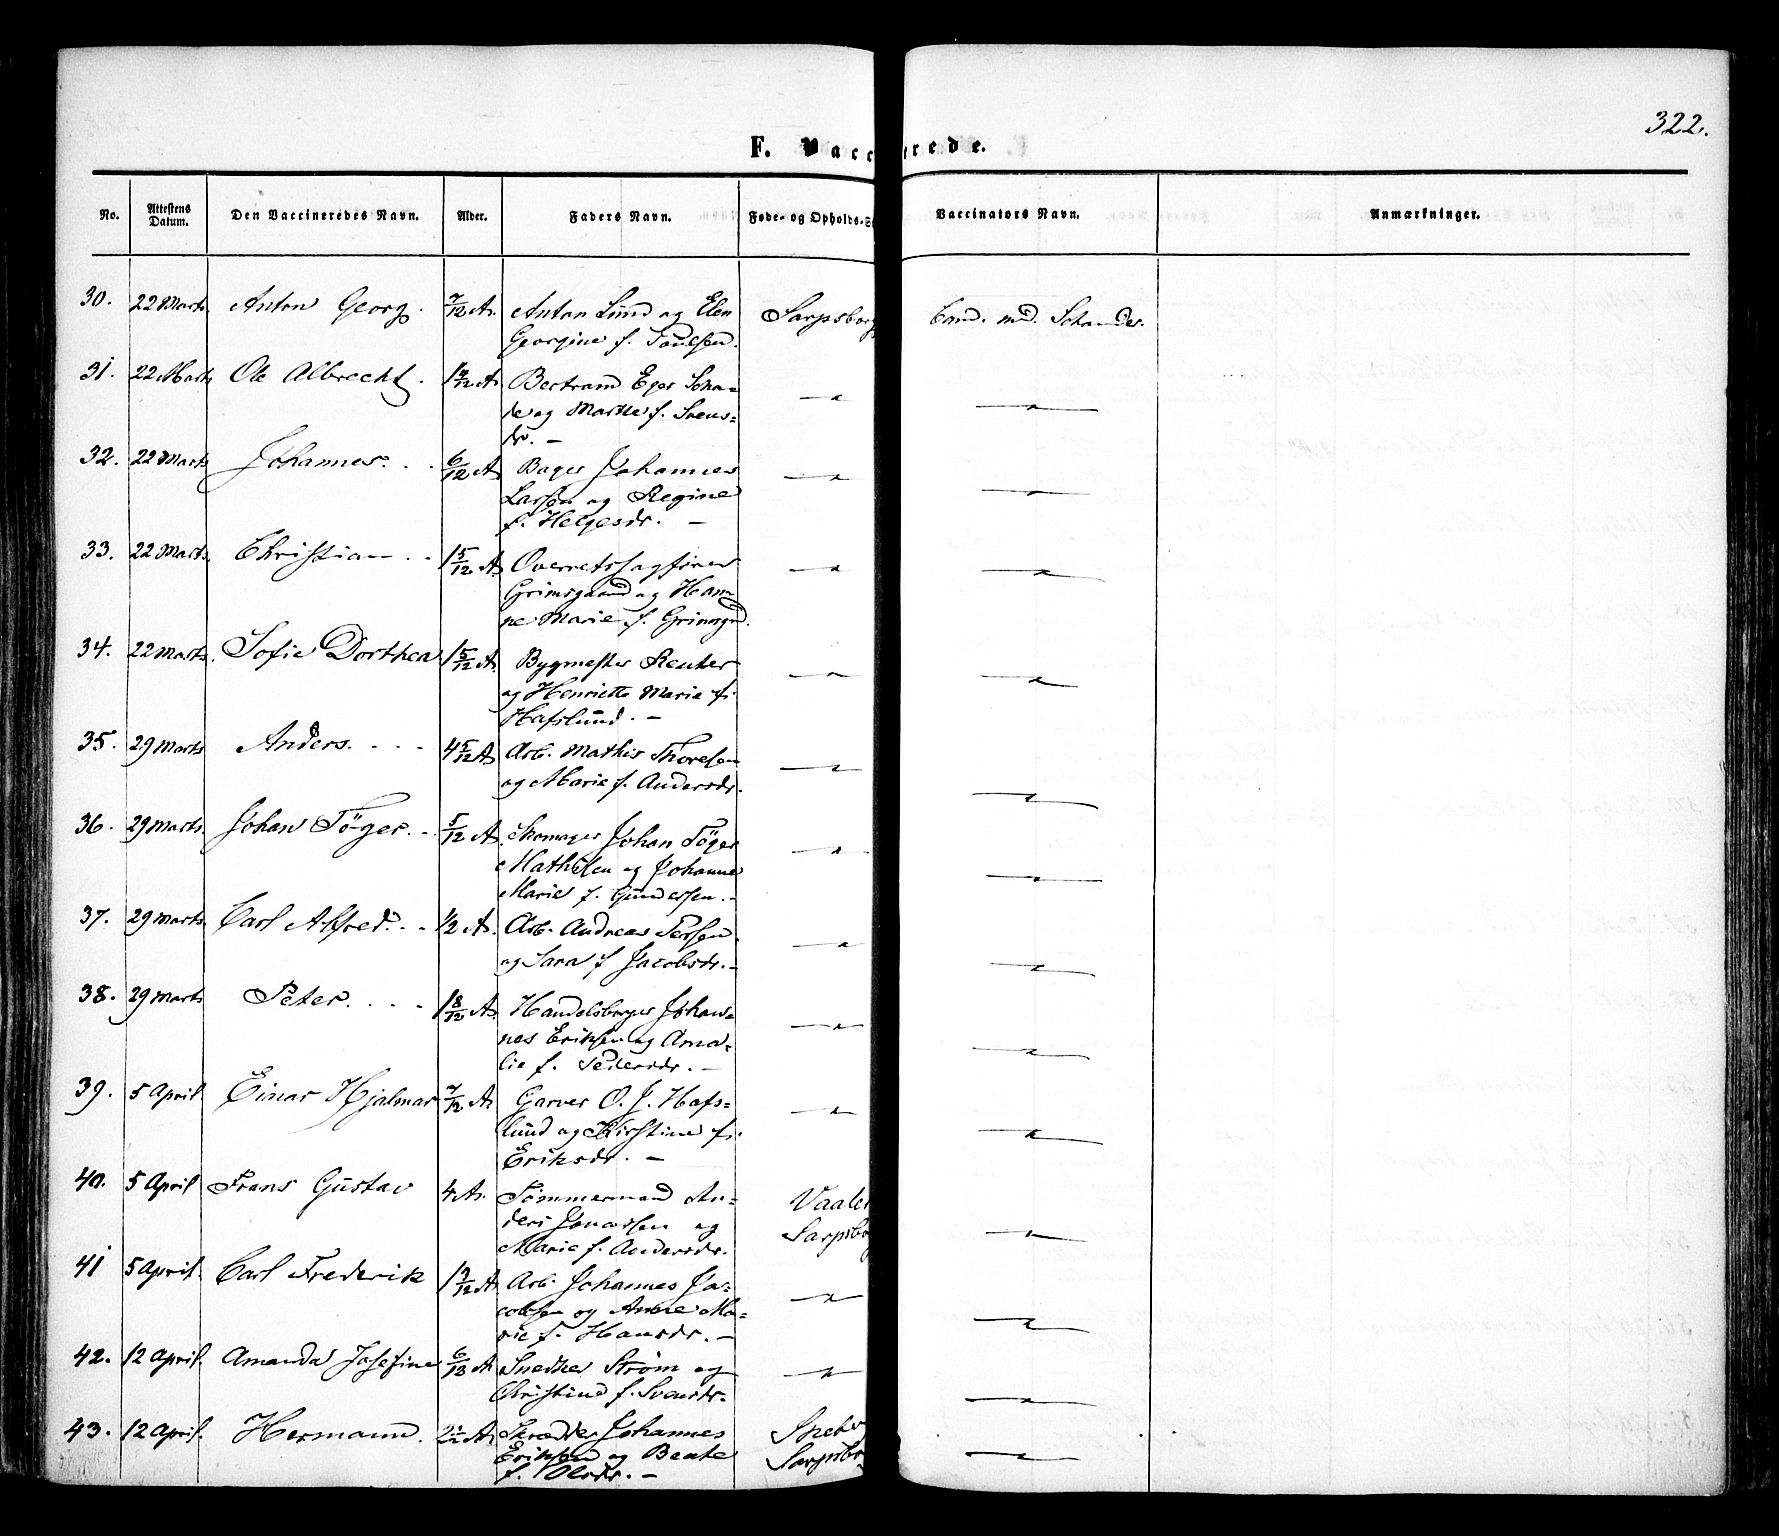 322.
F. Vaccinerede.
No. Attestens Datum. Den Vaccineredes Navn. Alder. Faders Navn. Føde- og Opholds-S Vaccinators Navn. Anmærkninger.
30. 22 Marts. Anton Georg. 7/12 A. Anton Lund og Elen Sarpsborg Cand. md. Schander.
Georgine f. Paulsen.
31. 22 Marts Ole Albrecht. A. Bertram Eger Scha=
de og Marthe f. Svens=
dr. —
32. 22 Marts Johannes. . . 6/12 A Bager Johannes
Larsen og Regine
f. Helgesdr. —
33. 22 Marts. Christian . . 1 5/12 A. Overretssagfører
Grimsgaard og Han
ne Marie f. Grimsgrd.
34. 22 Marts. Sofie Dorthea 1 5/12 A. Bygmester Reuter
og Henriette Marie f.
Hafslund. —
35. 29 Marts Anders. . . . 4 5/12 A. Arb. Mathis Thoresen
og Marie f. Andersdr.
36. 29 Marts. Johan Töger. . . 5/12 A. Skomager Johan Töger
Mathisen og Johanne
Marie f. Gundersen. –
37. 29 Marts. Carl Alfred. . . 1/2 A. Arb. Andreas Persen
og Sara f. Jacobsdr. –
38. 29 Marts Peter. . . . 1 8/12 A. Handelsborger Johan=
nes Eriksen og Ama=
lie f. Pedersdr. —
39. 5 April. Einar Hjalmar 7/12 A. Garver O. J. Hafs=
lund og Kirstine f.
Eriksdr. —
40. 5 April Frans Gustav 4 A. Tømmermand An= Vaaler
ders Jonassen og Sarpsbor
Marie f. Andersdr.
41 5 April. Carl Frederik A. Arb. Johannes Ja=
cobsen og Anne Ma=
rie f. Hansdr. —
42. 12 April. Amanda Josefine A Snedker Strøm og
Christine f. Svensdr.
43. 12 April. Hermann. A. Skrædder Johannes
Eriksen og Beate Sarpsbo
f. Olsdr. —